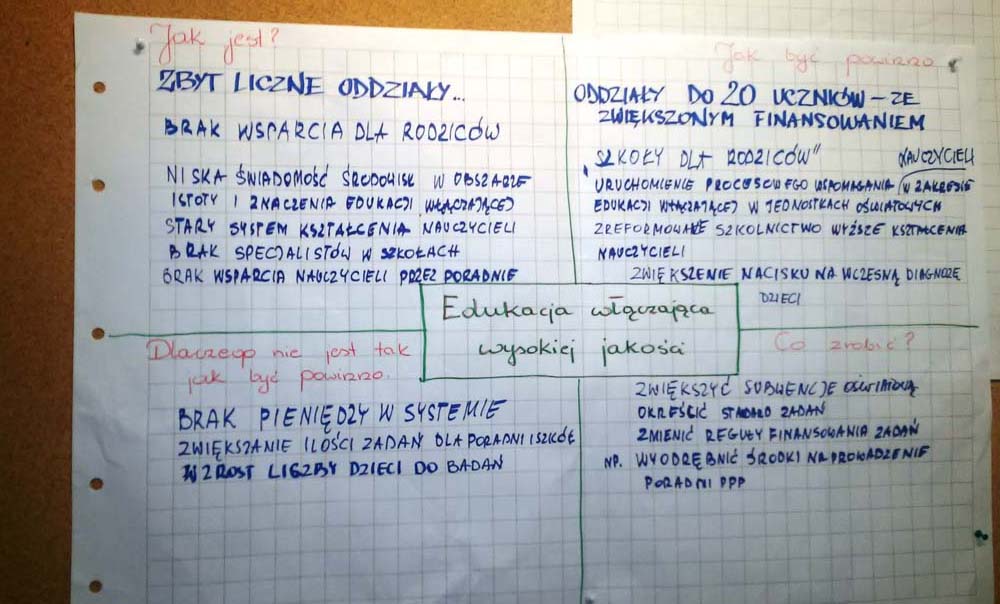 Jak jest?
ZBYT LICZNE ODDZIAŁY...
BRAK WSPARCIA DLA RODZICÓW
NISKA ŚWIADOMOŚĆ ŚRODOWISK W OBSZARZE
ISTOTY I ZNACZENIA EDUKACJI WŁĄCZAJĄCEJ
STARY SYSTEM KSZTAŁCENIA NAUCZYCIELI
BRAK SPECJALISTÓW W SZKOŁACH
BRAK WSPARCIA NAUCZYCIELI PRZEZ PORADNIE
Jak być powinno
ODDZIAŁY DO 20 UCZNKÓW – ZE
ZWIĘKSZONYM FINANSOWANIEM
"SZKOŁY DLA RODZICÓW"
NAUCZYCIELI
URUCHOMIENIE PROCESOWEGO WSPOMAGANIA W ZAKRESIE
EDUKACJI WŁĄCZAJĄCEJ W JEDNOSTKACH OŚWIATOWYCH
ZREFORMOWANE SZKOLNICTWO WYŻSZE KSZTAŁCENIA
NAUCZYCIELI
ZWIĘKSZENIE NACISKU NA WCZESNĄ DIAGNOZĘ
DZIECI
Edukacja włączająca
wysokiej jakości
Dlaczego nie jest tak
jak być powinno.
BRAK PIENIĘDZY W SYSTEMIE
ZWIĘKSZANIE ILOŚCI ZADAŃ DLA PORADNI I SZKÓŁ
WZROST LICZBY DZIECI DO BADAŃ
Co zrobić?
ZWIĘKSZYĆ SUBWENCJE OŚWIATOWĄ
OKREŚLIĆ STANDARD ZADAŃ
ZMIENIĆ REGUŁY FINANSOWANIA ZADAŃ
NP. WYODRĘBNIĆ ŚRODKI NA PROWADZENIE
PORADNI PPP